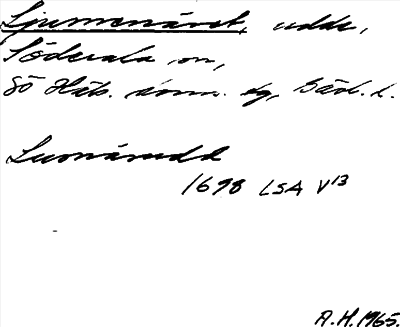 Ljumenäret, udde,
Söderala sn,
Sö Häls. doms. tg, Gävl. l.
Lusnärudd
1698 LSA V13
A.H. 1965.